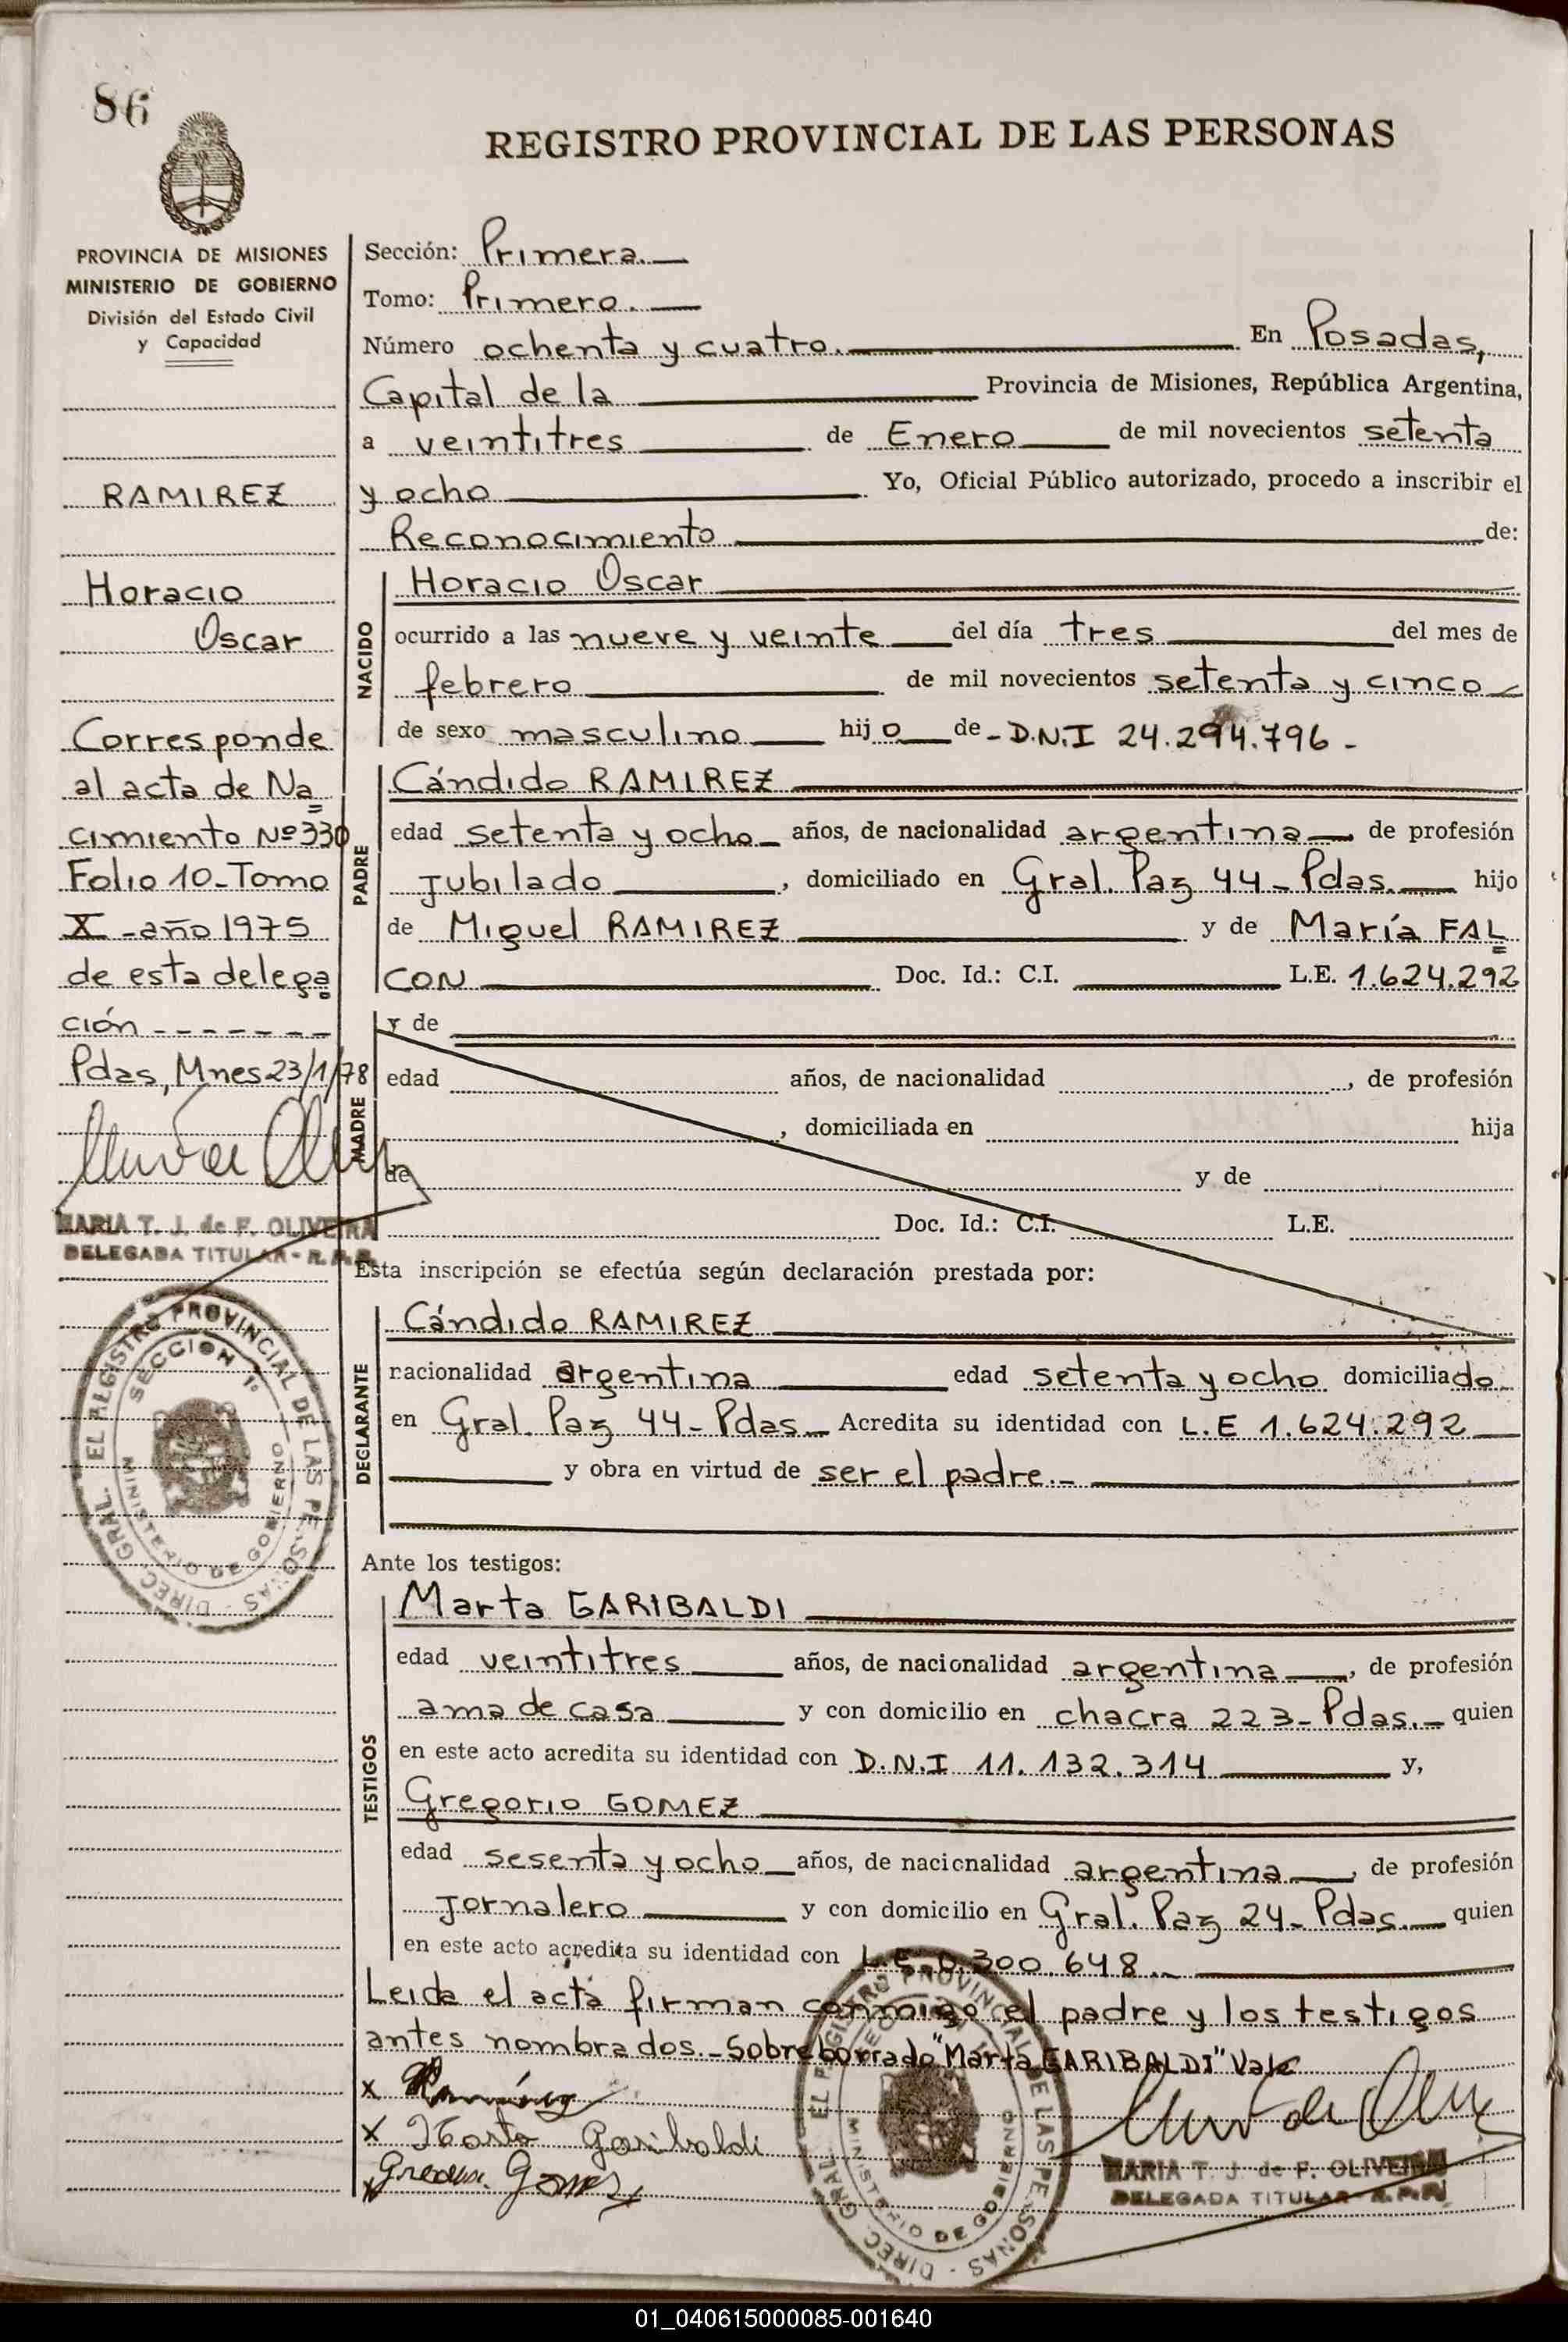 86
REGISTRO PROVINCIAL DE LAS PERSONAS
PROVINCIA DE MISIONES
MINISTERIO DE GOBIERNO
División del Estado Civil
y Capacidad
RAMIREZ
Horacio
Oscar
Corresponde
al acta de Na=
cimiento Nº 330
Folio 10_Tomo
X _año 1975
de esta delega=
ción -------
Pdas, Mnes 23/1/78
MARIA T. J. de F. OLIVEIRA
DELEGADA TITULAR - R.P.P.
DIREC. GRAL. EL REGISTRO PROVINCIAL DE LAS PERSONAS -
SECCION 1º
MINISTERIO DE GOBIERNO
Sección: Primera.
Tomo: Primero.
Número ochenta y cuatro. En Posadas,
Capital de la Provincia de Misiones, República Argentina,
a veintitres de Enero de mil novecientos setenta
y ocho Yo, Oficial Público autorizado, procedo a inscribir el
Reconocimiento de:
NACIDO
Horacio Oscar
ocurrido a las nueve y veinte del día tres del mes de
febrero de mil novecientos setenta y cinco
de sexo masculino hijo de - D.N.I 24.294.796 -
PADRE
Cándido RAMIREZ
edad setenta y ocho años, de nacionalidad argentina de profesión
Jubilado, domiciliado en Gral. Paz 44_ Pdas. hijo
de Miguel RAMIREZ y de María FAL=
CON Doc. Id.: C.I. L.E. 1.624.292
MADRE
y de
edad años, de nacionalidad , de profesión
, domiciliada en hija
de y de
Doc. Id.: C.I. L.E.
Esta inscripción se efectúa según declaración prestada por:
DECLARANTE
Cándido RAMIREZ
nacionalidad argentina edad setenta y ocho domiciliado
en Gral. Paz 44_ Pdas._ Acredita su identidad con L.E 1.624.292
y obra en virtud de ser el padre._
Ante los testigos:
TESTIGOS
Marta GARIBALDI
edad veintitres años, de nacionalidad argentina, de profesión
ama de casa y con domicilio en chacra 223_ Pdas._ quien
en este acto acredita su identidad con D.N.I 11.132.314 y,
Gregorio GOMEZ
edad sesenta y ocho años, de nacionalidad argentina, de profesión
Jornalero y con domicilio en Gral. Paz 24_ Pdas. quien
en este acto acredita su identidad con L.E. 0.300.648._
Leida el acta firman conmigo el padre y los testigos
antes nombrados._Sobreborrado "Marta GARIBALDI" Vale
x Ramírez
x Marta Garibaldi
x Gomez
DIREC. GRAL. EL REGISTRO PROVINCIAL DE LAS PERSONAS -
MINISTERIO DE GOBIERNO
MARIA T. J. de F. OLIVEIRA
DELEGADA TITULAR - R.P.P.
01_040615000085-001640